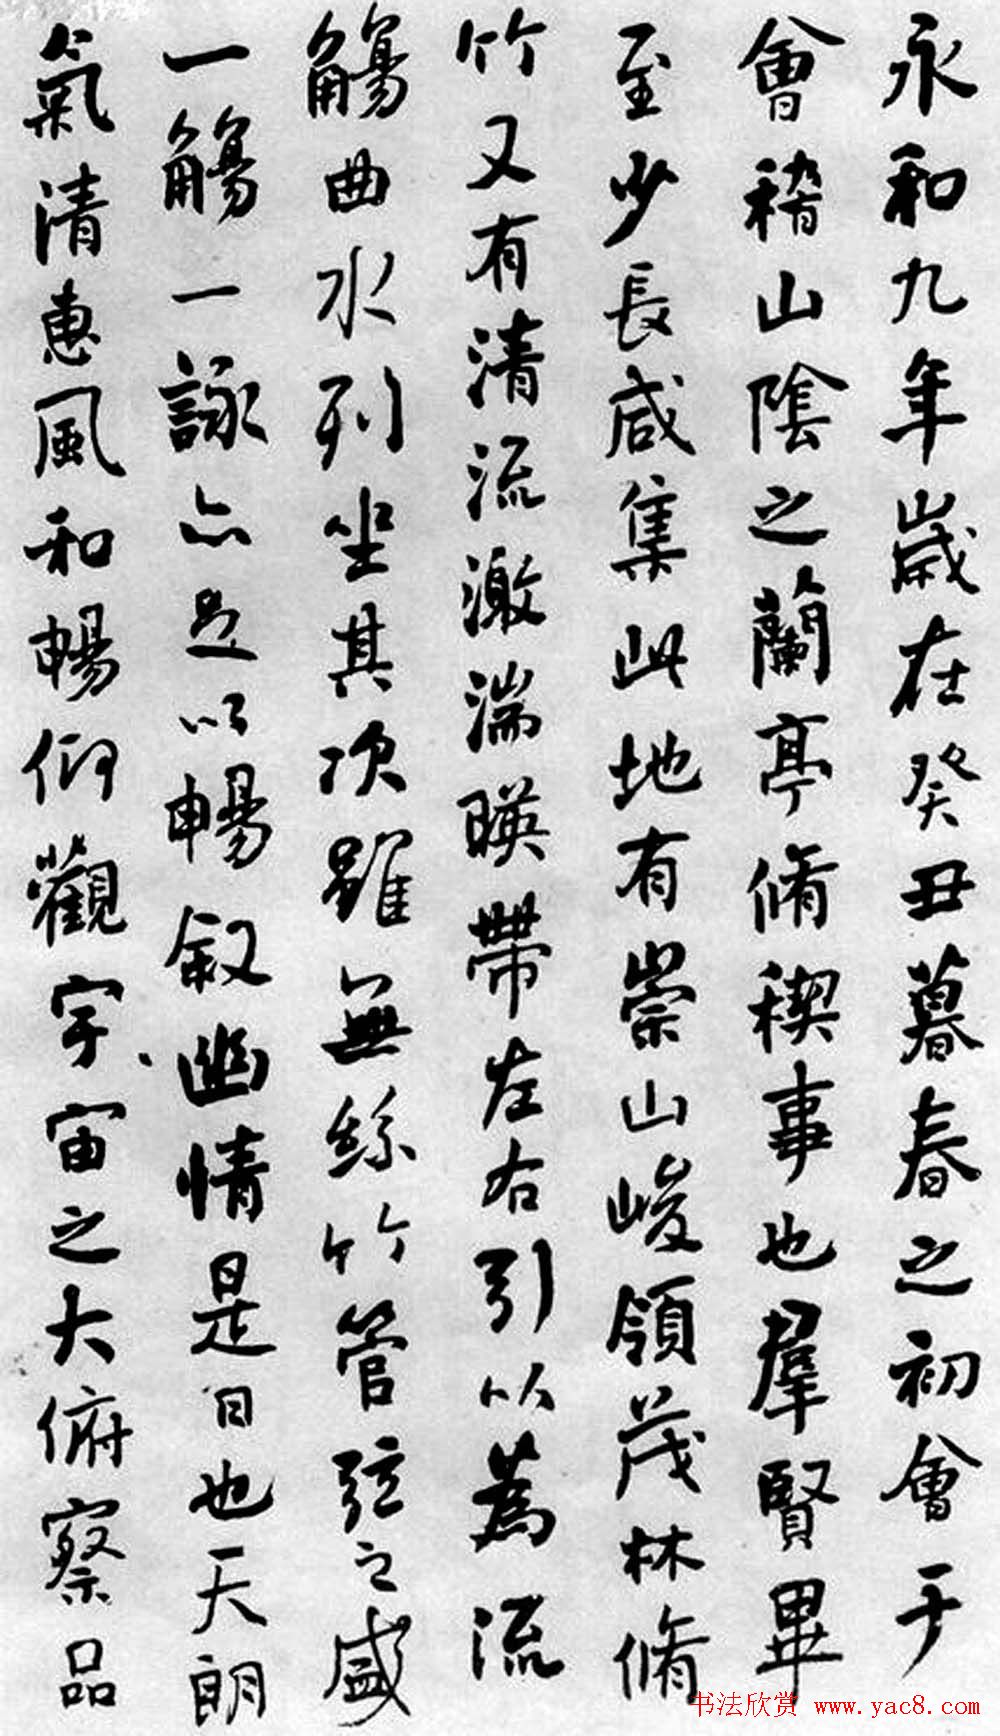 永和九年歲在癸丑暮春之初會于
會稽山陰之蘭亭脩稧事也羣賢畢
至少長咸集此地有崇山峻領茂林脩
竹又有清流激湍暎帶左右引以為流
觴曲水列坐其次雖無絲竹管弦之盛
一觴一詠亦足以暢敘幽情是日也天朗
氣清惠風和暢仰觀宇宙之大俯察品
书法欣赏 www.yac8.com